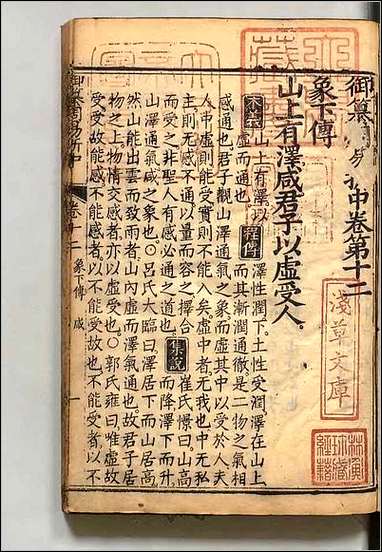 御纂周易折中卷第十二
象下傳
山上有澤咸君子以虛受人。
本義 山上有澤以
虛而通也
程傳 澤性潤下。土性受潤。澤在山上
而其漸潤通徹。是二物之氣相
感通也。君子觀山澤通氣之象而虛其中以受於人。夫
人中虛則能受。實則不能入矣。虛中者无我也。中无私
主則无感不通。以量而容之。擇合
而受之。非聖人有感必通之道也。
集說 崔氏憬曰。山高
而降。澤下而升。
山澤通氣。咸之象也。○呂氏大臨曰。澤居下而山居高。
然山能出雲而致雨者。山內虛而澤氣通也。故君子居
物之上。物情交感者。亦以虛受也。○郭氏雍曰。唯虛故
受。受故能感。不能感者。以不能受故也。不能受者。以不
御纂周易折中
卷十二
象下傳 咸
一
淺草文庫